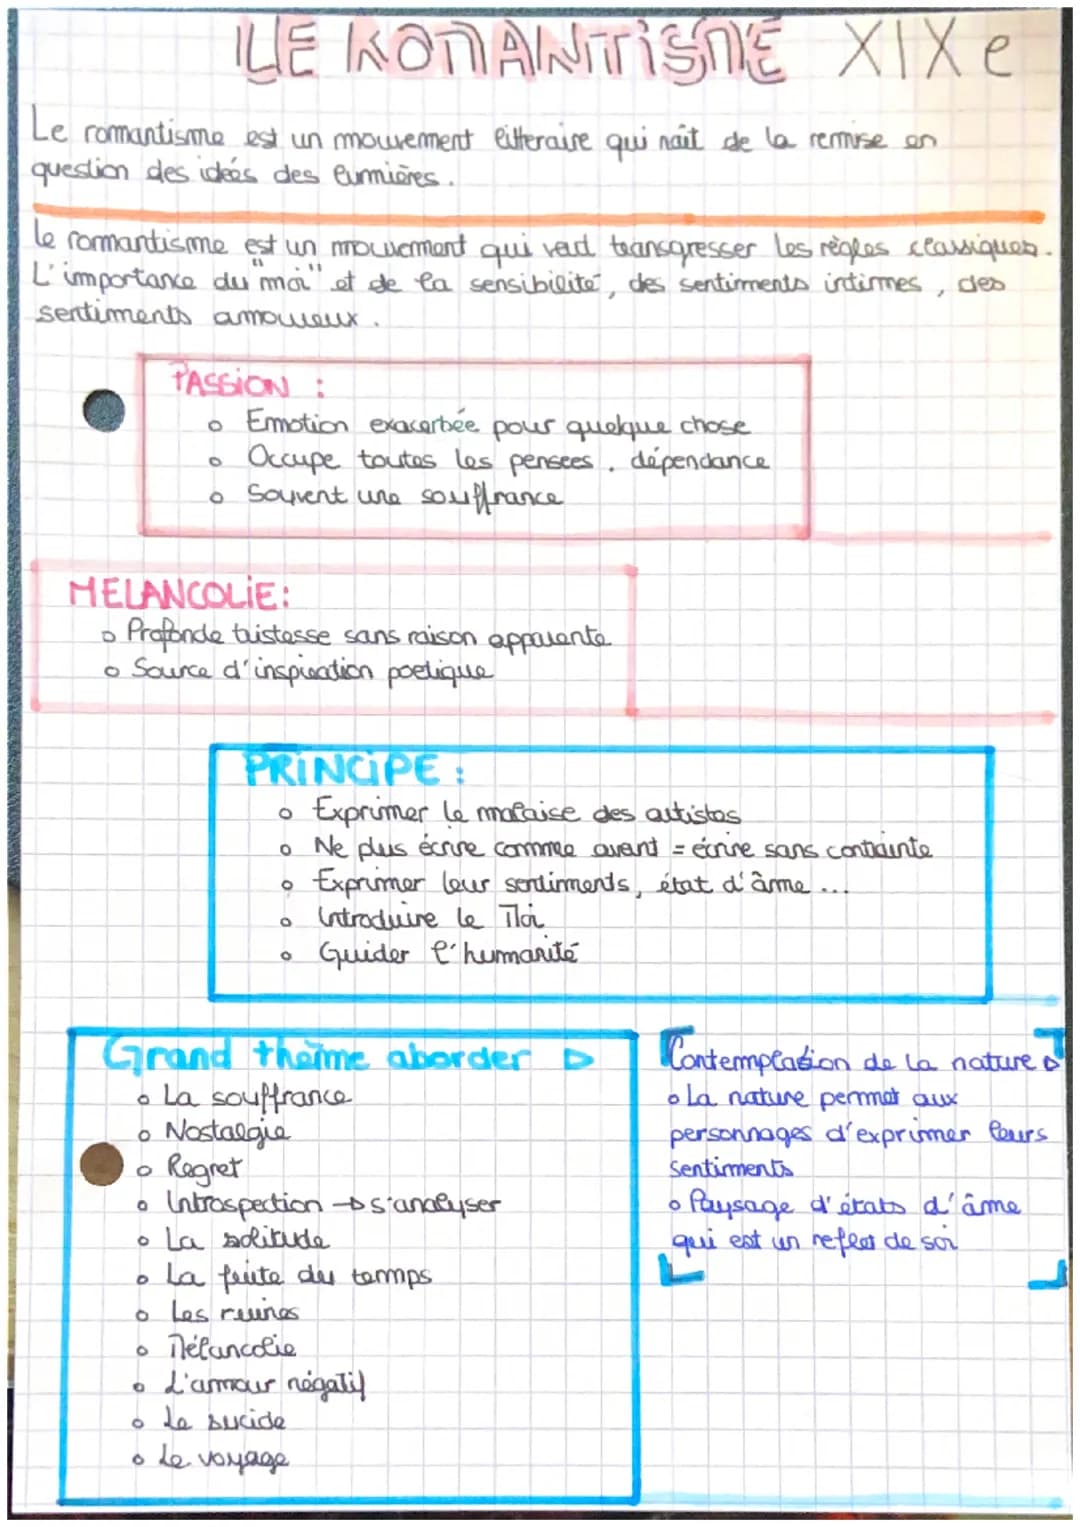 LE ROMANTiSME XIXe
Le romantisme est un mouvement litteraire qui naît de la remise en
question des idées des lumières.
le romantisme est un mouvement qui veut transgresser les règles classiques.
L'importance du "moi" et de la sensibilité, des sentiments intimes, des
sentiments amoureux.
PASSiON :
o Emotion exacerbée pour quelque chose
o Occupe toutes les pensees. dépendance
o Souvent une souffrance
MELANCOLiE:
o Profonde tristesse sans raison apparente
o Source d'inspiration poetique
PRiNCiPE :
o Exprimer le malaise des artistes
o Ne plus écrire comme avant = écrire sans contrainte
o Exprimer leur sentiments, état d'âme ...
o Introduire le Moi
o Guider l'humanité
Grand thème aborder
o La souffrance
o Nostalgie
o Regret
o Introspection → s'analyser
o La solitude
o La fuite du temps
o Les ruines
o Mélancolie
o L'amour négatif
o Le sucide
o Le voyage
Contemplation de la nature
o La nature permet aux
personnages d'exprimer leurs
sentiments
o Paysage d'états d'âme
qui est un reflet de soi